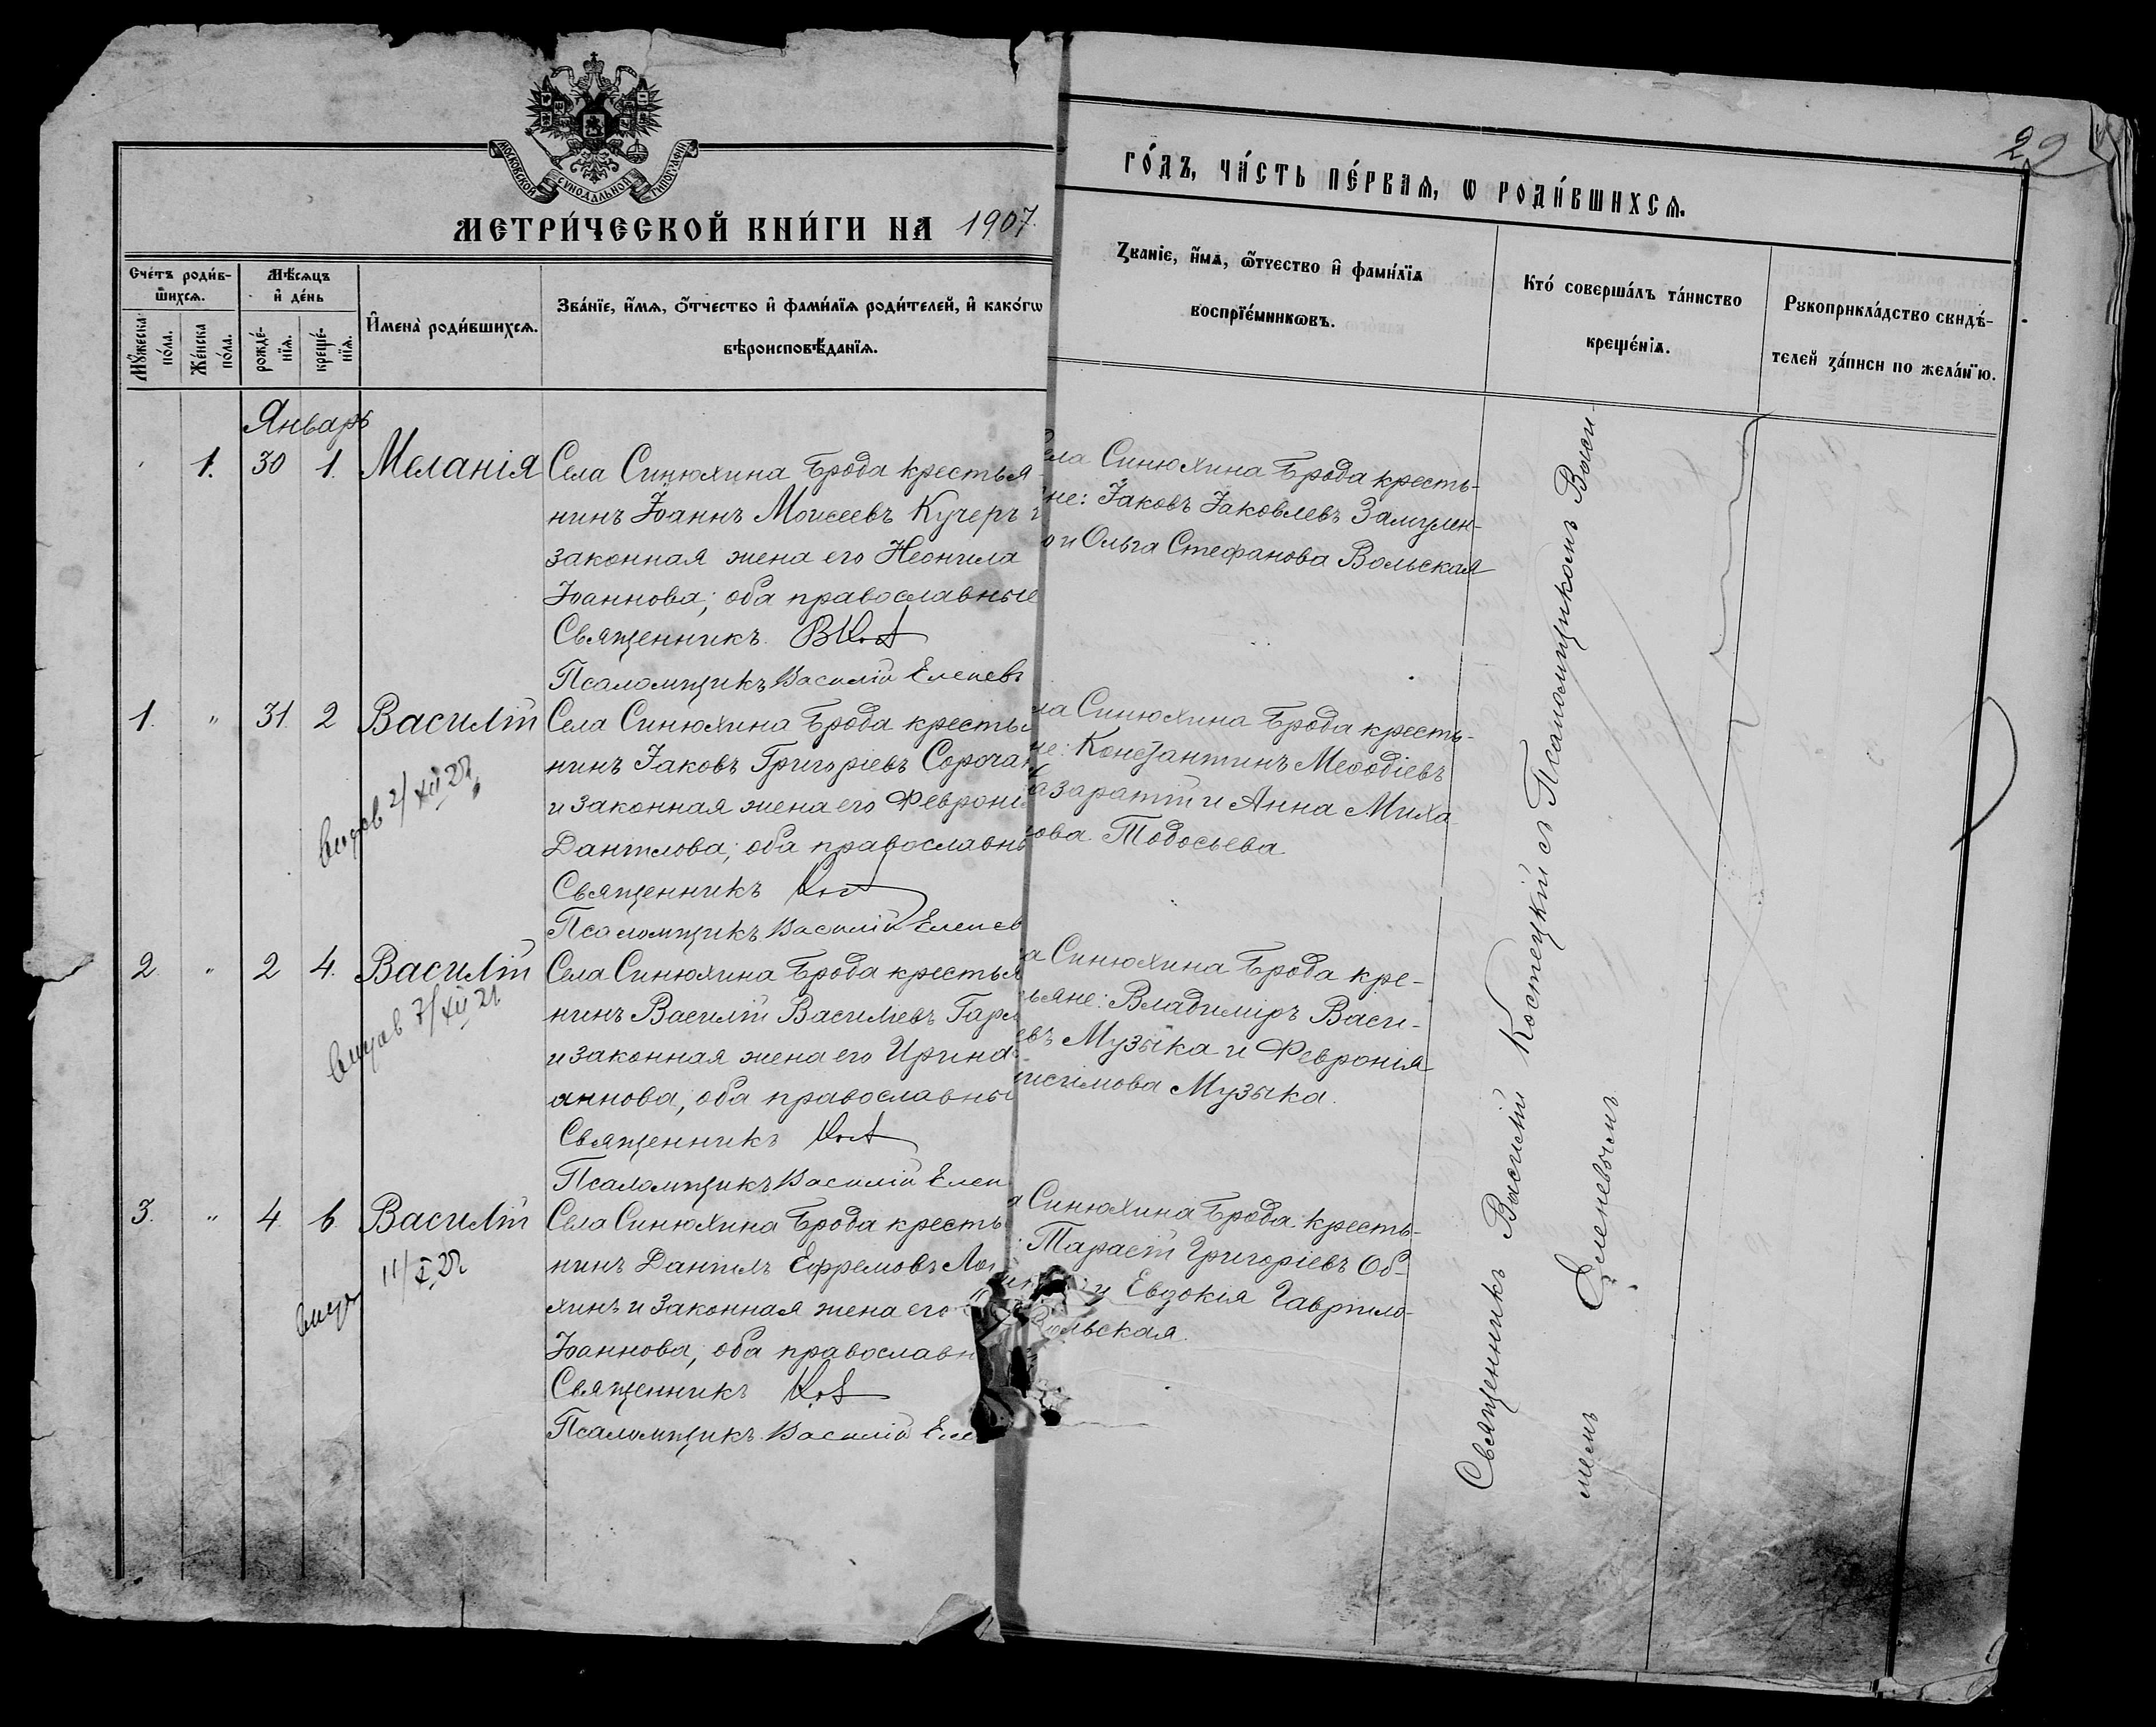 29
МОСКОВСКОЙ СѴНОДАЛЬНОЙ ТИПОГРАФІИ
МЕТРИ́ЧЕСКОЙ КНИ́ГИ НА 1907.
ГО́ДЪ, ЧА́СТЬ ПЕ́РВАѦ, Ѡ РОДИ́ВШИХСѦ.
Сче́тъ роди́в-
шихсѧ.
Мꙋ́жеска
по́ла.
Же́нска
по́ла.
Мѣ́сѧцъ
и҆ де́нь
рожде́-
нїѧ.
креще́-
нїѧ.
И҆мена̀ роди́вшихсѧ.
Зва́нїе, и҆́мѧ, ѻ҆́тчество и҆ фами́лїѧ роди́телей, и҆ како́гѡ
вѣроисповѣ́данїѧ.
Зва́нїе, и҆́мѧ, ѻ҆́тчество и҆ фами́лїѧ
воспрїе́мникѡвъ.
Кто́ соверша́лъ та́инство
креще́нїѧ.
Рꙋкоприкла́дство свидѣ́-
телей за́писи по жела́нїю.
Январь
1. 30 1. Меланія
Села Синюхина Брода крестья
нинъ Іоаннъ Моисеевъ Кучеръ и
законная жена его Неонила
Іоаннова; оба православные
Священникъ
Псаломщикъ Василій Еленевъ
ела Синюхина Брода кресть-
не: Іаковъ Іаковлевъ Замулен-
о и Ольга Стефанова Вольская
1. " 31. 2 Василій
Села Синюхина Брода кресть
нинъ Іаковъ Григоріевъ Сорочан
и законная жена его Февроні
Даніилова; оба православны
Священникъ
Псаломщикъ Василій Еленев
ла Синюхина Брода кресть-
не: Константинъ Меѳодіевъ
азаратій и Анна Миха
ова Тодосьева
2. " 2 4. Василій
Села Синюхина Брода крестья
нинъ Василій Васильевъ Гарм
и законная жена его Ирина
аннова, оба православны
Священникъ
Псаломщикъ Василій Елен
а Синюхина Брода кре-
ьяне: Владиміръ Васи-
евъ Музыка и Февронія
исимова Музыка.
3. " 4 6 Василій
Села Синюхина Брода кресть
нинъ Даніилъ Ефремовъ
хинъ и законная жена его
Іоаннова, оба православн
Священникъ
Псаломщикъ Василій Еле
а Синюхина Брода кресть-
: Тарасій Григоріевъ Об-
и Евдокія Гаврило-
Вольская.
Священникъ Василій Костецкій съ Псаломщикомъ Васи-
ліемъ Еленевымъ